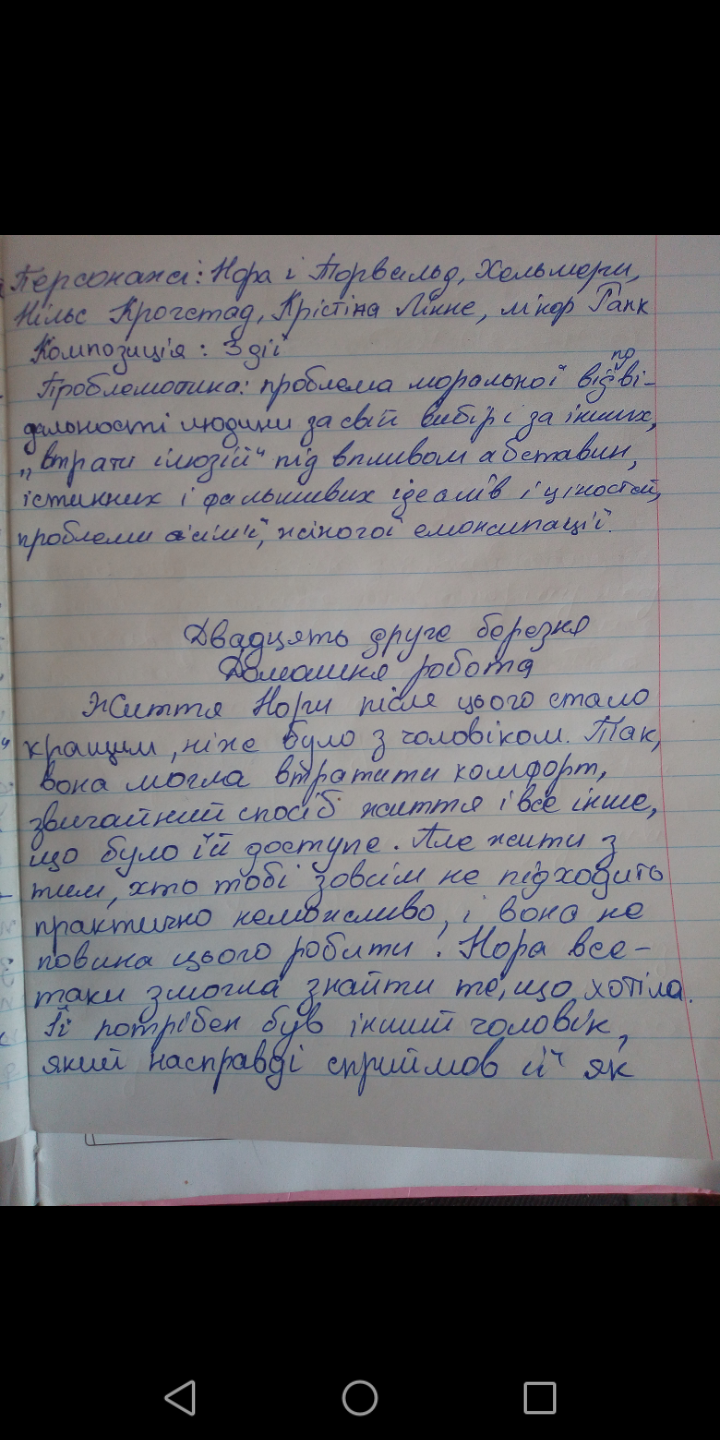 Персонажі: Нора і Торвальд, Хельмери,
Нільс Крогстад, Крістіна Лінне, лікар Ранк
Композиція: 3 дії
Проблематика: проблема моральної відпові-
дальності людини за свій вибір і за інших,
„втрати ілюзій" під впливом обставин,
істинних і фальшивих ідеалів і ціностей,
проблеми сім'ї, жіночої емансипації.
Двадцять друге березня
Домашня робота
Життя Нори після цього стало
кращим, ніж було з чоловіком. Так,
вона могла втратити комфорт,
звичайний спосіб життя і все інше,
що було їй доступе. Але жити з
тим, хто тобі зовсім не підходить
практично неможливо, і вона не
повина цього робити. Нора все-
таки змогла знайти те, що хотіла.
Їй потрібен був інший чоловік,
який насправді сприймав її як